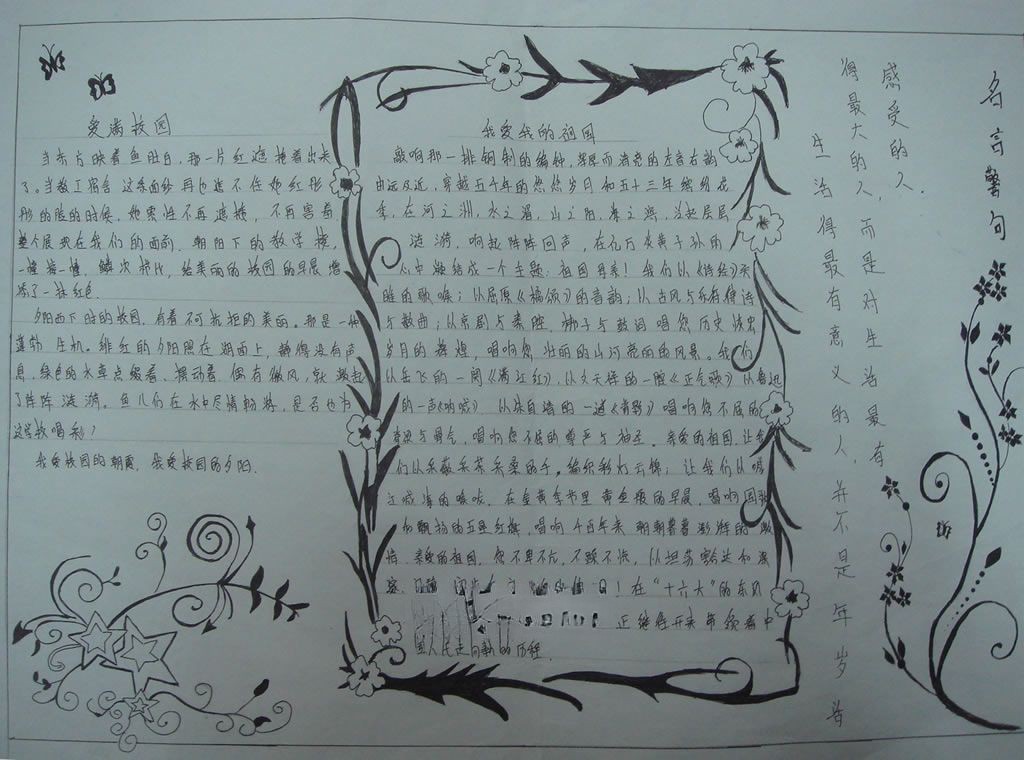 爱满校园
当东方映着鱼肚白,那一片红遮掩着出来
了。当教工宿舍 这条面纱 再也遮不住她红彤
彤的脸的时候,她索性不再遮掩,不再害羞
整个展现在我们的面前。朝阳下的教学楼,
一幢接一幢,鳞次栉比,给美丽的校园的早晨增
添了一抹红色.
夕阳西下时的校园,有着不可抗拒的美丽。那是一种
蓬勃 生机。绯红的夕阳照在湖面上,静得没有声
息,绿色的水草点缀着,摆动着.偶有微风,就激起
了阵阵涟漪。鱼儿们在水中尽情畅游,是否也为
这 校唱彩!
我爱校园的朝霞,我爱校园的夕阳.
我爱我的祖国
敲响那一排铜制的编钟,浑厚而清亮的左音右韵
由远及近,穿越五千年的悠悠岁月和五十三年缤纷花
季,在河之洲,水之湄,山之阳,海之滨,泛起层层
涟漪,响起阵阵回声,在亿万炎黄子孙的
心中凝结成一个主题:祖国母亲!我们从《诗经》采
的歌喉;从屈原《橘颂》的音韵;从古风与乐府律诗
与散曲;从京剧与秦腔,梆子与鼓词 唱您历史
岁月的辉煌,唱响您壮丽的山河亮丽的风景。我们
从岳飞的一阕《满江红》,从文天祥的一腔《正气歌》从鲁迅
的一声《呐喊》 从朱自清的一道《背影》唱响您不屈的
意识与勇气,唱响您不屈的尊严与神圣。亲爱的祖国,让我
们从采薇采茶采桑的手。编织彩灯云锦;让我们从喊
江城海的喉咙。在金黄季节里 黄金般的早晨。唱响国歌
和飘扬的五星红旗,唱响千百年来 朝朝暮暮澎湃的激
情 亲爱的祖国,您不卑不亢,不躁不惊,从坦荡豁达和
!在“十六大”的东风
正继往开来 带领着中
国人民走向新的历程.
生活得最有意义的人,并不是年岁活
得最大的人,而是对生活最有
感受的人.
名言警句